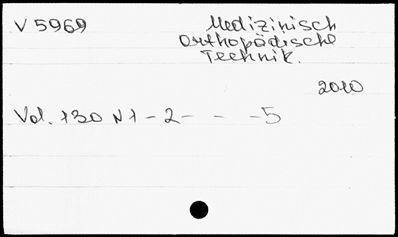 V 5969
Medizinisch
Orthopädische
Technik.
2010
Vol. 130 N 1 - 2 - - - 5